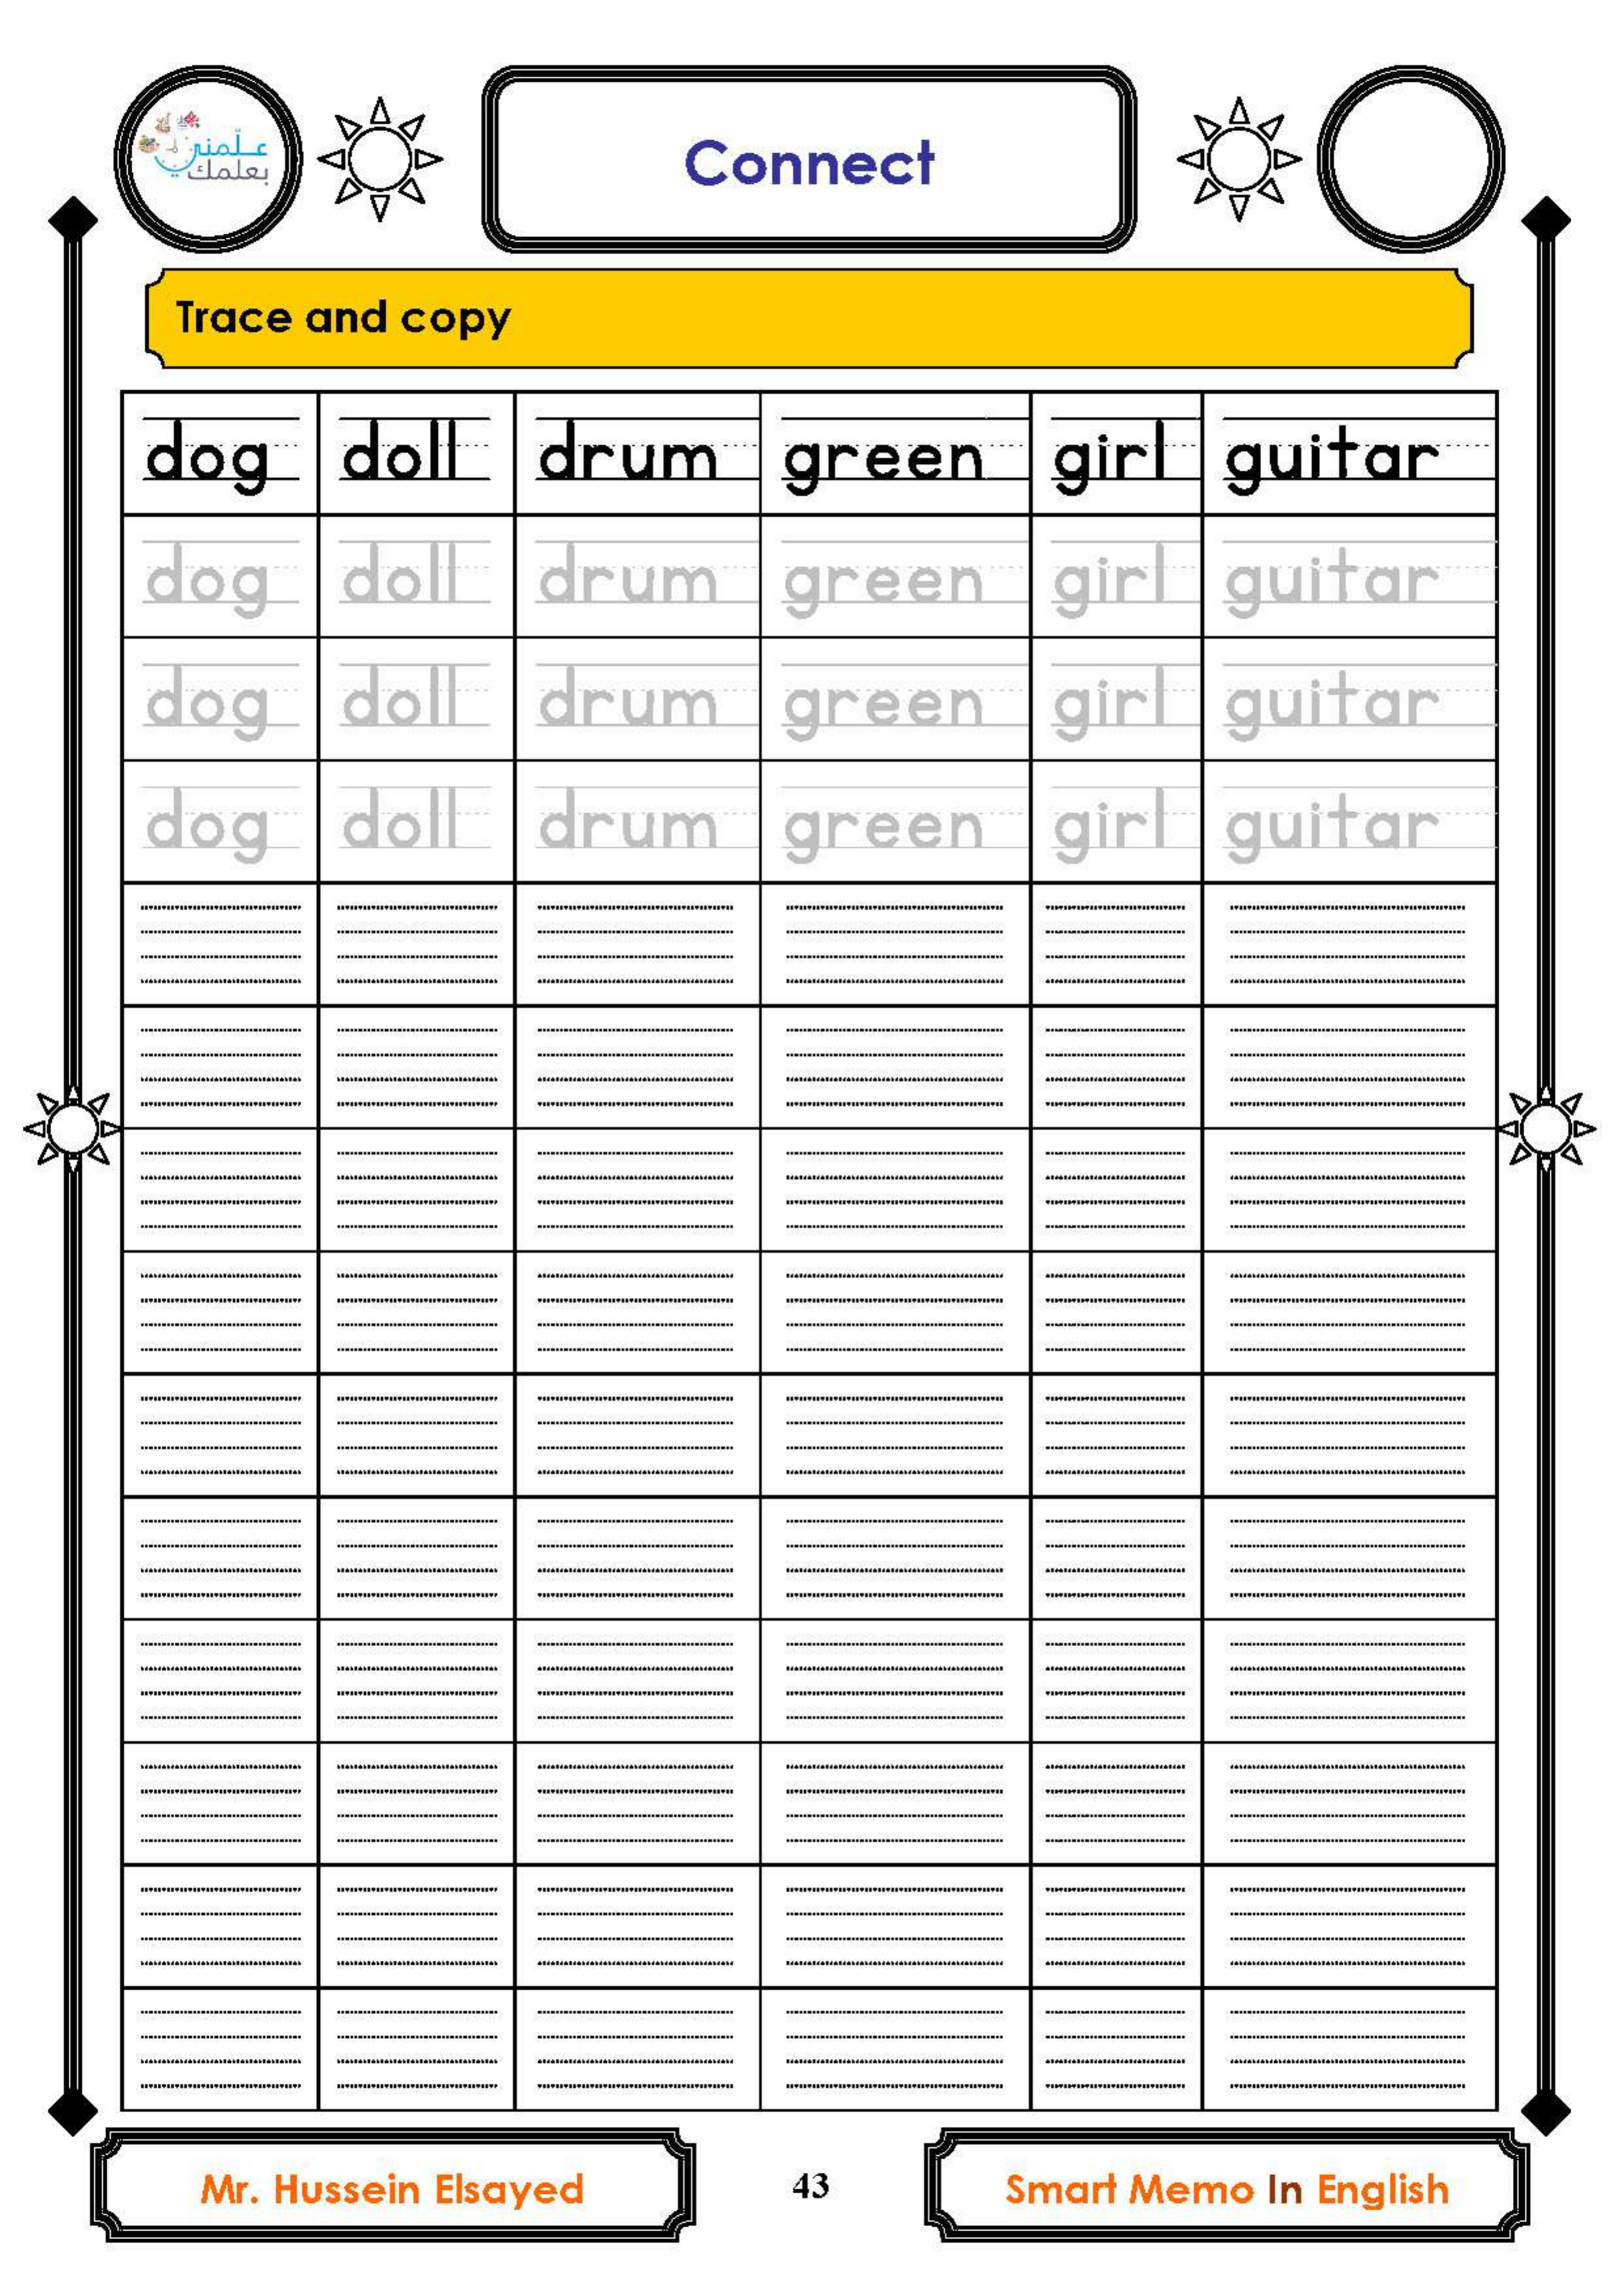 علّمني
بعلمك
Connect
Trace and copy
dog doll drum green girl guitar
dog doll drum green girl guitar
dog doll drum green girl guitar
dog doll drum green girl guitar
Mr. Hussein Elsayed 43 Smart Memo In English